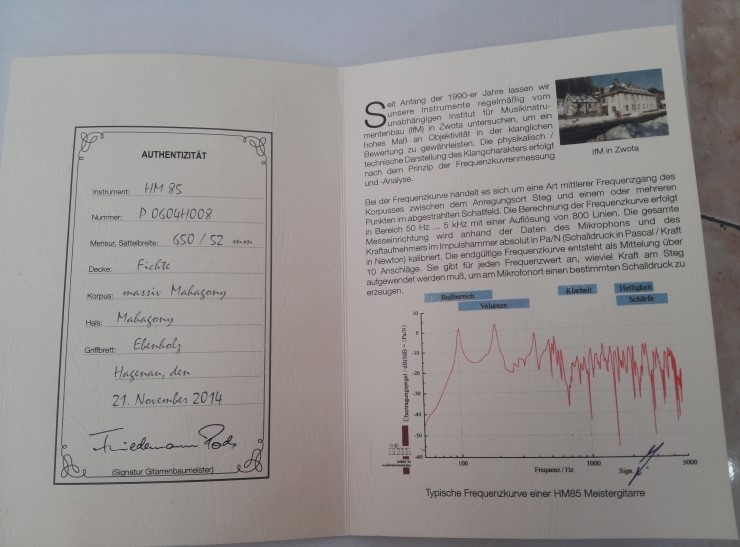 AUTHENTIZITÄT
Instrument: HM 85
Nummer: P 0604H008
Mensur, Sattelbreite: 650 / 52 mm
Decke: Fichte
Korpus: massiv Mahagony
Hals: Mahagony
Griffbrett: Ebenholz
Hagenau, den
21. November 2014
(Signatur Gitarrenbaumeister)
Seit Anfang der 1990-er Jahre lassen wir
unsere Instrumente regelmäßig vom
unabhängigen Institut für Musikinstru-
mentenbau (IfM) in Zwota untersuchen, um ein
hohes Maß an Objektivität in der klanglichen
Bewertung zu gewährleisten. Die physikalisch /
technische Darstellung des Klangcharakters erfolgt
nach dem Prinzip der Frequenzkuvrenmessung
und -Analyse.
IfM in Zwota
Bei der Frequenzkurve handelt es sich um eine Art mittlerer Frequenzgang des
Korpusses zwischen dem Anregungsort Steg und einem oder mehreren
Punkten im abgestrahlten Schallfeld. Die Berechnung der Frequenzkurve erfolgt
in Bereich 50 Hz ... 5 kHz mit einer Auflösung von 800 Linien. Die gesamte
Messeinrichtung wird anhand der Daten des Mikrophons und des
Kraftaufnehmers im Impulshammer absolut in Pa/N (Schalldruck in Pascal / Kraft
in Newton) kalibriert. Die endgültige Frequenzkurve entsteht als Mittelung über
10 Anschläge. Sie gibt für jeden Frequenzwert an, wieviel Kraft am Steg
aufgewendet werden muß, um am Mikrofonort einen bestimmten Schalldruck zu
erzeugen.
Baßbereich
Volumen
Klarheit
Helligkeit
Schärfe
10
0
-10
-20
-30
-50
-60
100
1000
5000
Frequenz / Hz
Sign.
Typische Frequenzkurve einer HM85 Meistergitarre